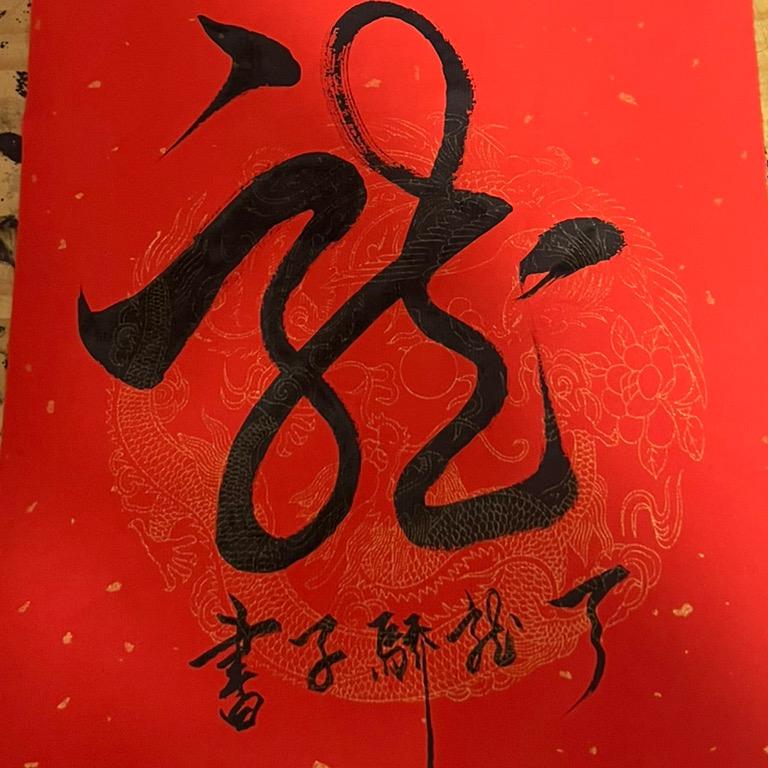 龍
了龍驕子書